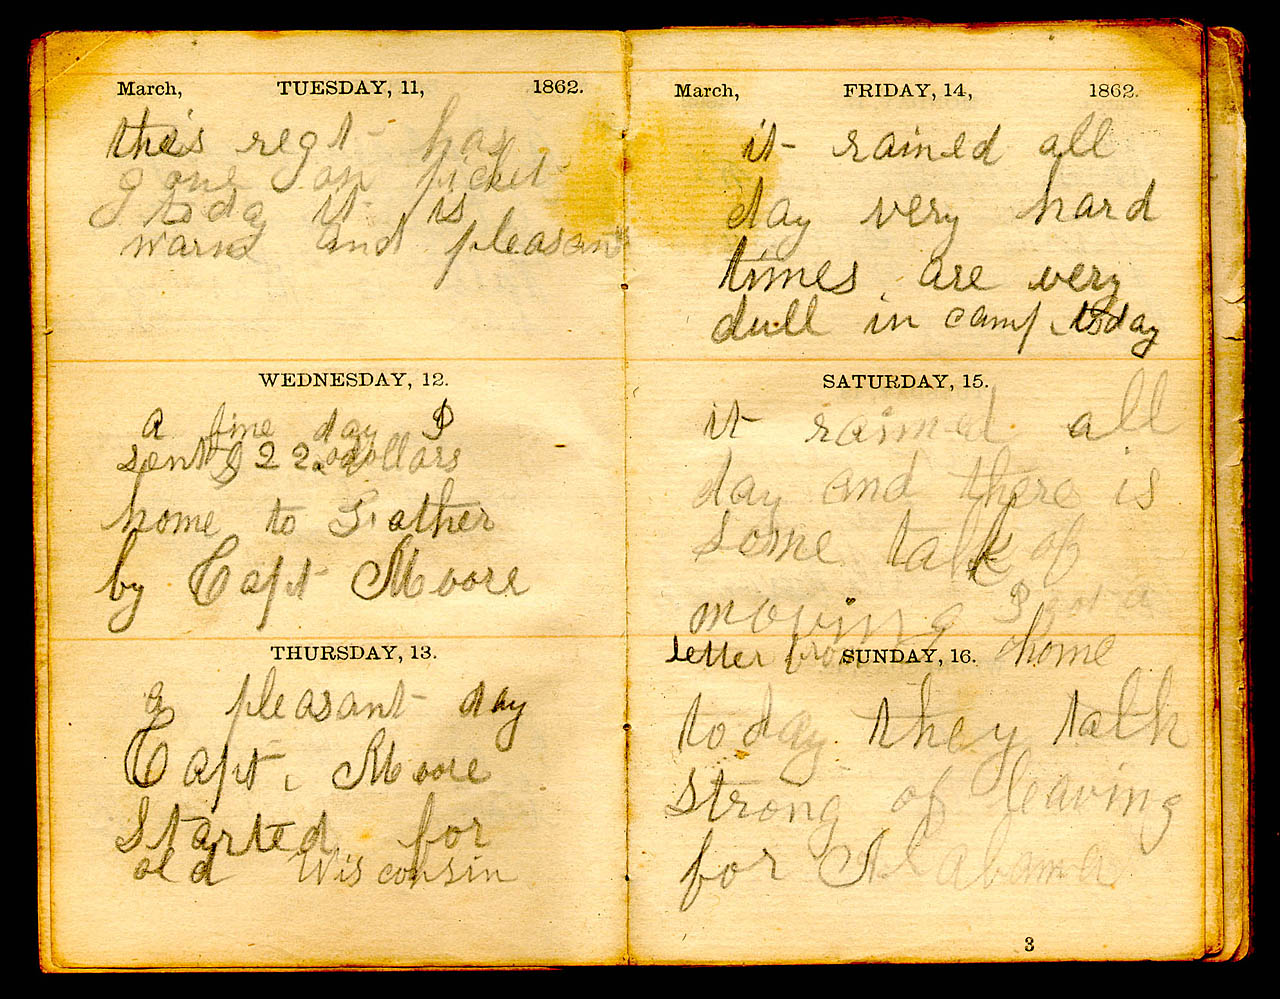 March, TUESDAY, 11, 1862.
this regt has
gone on picket
today it is
warm and pleasant
WEDNESDAY, 12.
a fine day I
sent $22.00 dollars
home to Father
by Capt Moore
THURSDAY, 13.
a pleasant day
Capt. Moore
started for
old Wisconsin
March, FRIDAY, 14, 1862.
it rained all
day very hard
times are very
dull in camp today
SATURDAY, 15.
it rained all
day and there is
some talk of
moving I got a
letter from home
SUNDAY, 16.
today they talk
strong of leaving
for Alabama
3